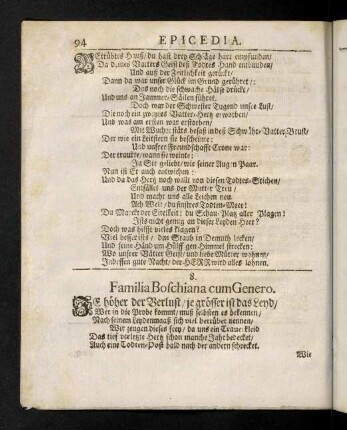 94 EPICEDIA.
Betrübtes Hauß/ du hast drey Schläge hart empfunden/
Da deines Vatters Geist deß Todtes Hand entbunden/
Und auß der Zeitlichkeit gerückt/
Dann da war unser Glück im Grund gerühret/:
Das noch die schwache Hälse drückt/
Und uns an Jammer-Säilen führet.
Doch war der Schwester Tugend unser Lust/
Die noch ein zweytes Vatter-Hertz erworben/
Und was am ersten war erstorben/
Mit Wucher stäts besaß in deß Schwäher-Vatter-Brust/
Der wie ein Leitstern sie bescheinte:
Und unsrer Freundschafft Crone war:
Der traurte/ wann sie weinte:
Ja Sie geliebt/ wie seiner Augen Paar.
Nun ist Er auch entwichen:
Und da das Hertz noch wallt von diesen Todtes-Stichen/
Entfället uns der Mutter Treu/
Und macht uns alle Leichen neu
Ach Welt/ du finstres Todten-Meer!
Du Marckt der Eitelkeit; du Schau-Platz aller Plagen!
Ists nicht genug an dieser Leyden Heer?
Doch was hilfft vieles klagen?
Viel besser ists/ den Staub in Demuth lecken/
Und seine Händ um Hülff gen Himmel strecken:
Wo unsrer Vätter Geist/ und liebe Mütter wohnen/
Indessen gute Nacht/ der HERR wird alles lohnen.
8.
Familia Boschiana cum Genero.
JE höher der Verlust/ je grösser ist das Leyd/
Wer in die Probe kommt/ muß selbsten es bekennen/
Nach seinem Leydenmaaß sich viel herüber nennen/
Wir zeugen dieses frey/ da uns ein Trauer-kleid
Das tief verletzte Hertz schon manche Jahr bedecket/
Auch eine Todten-Post bald nach der andern schrecket.
Wie